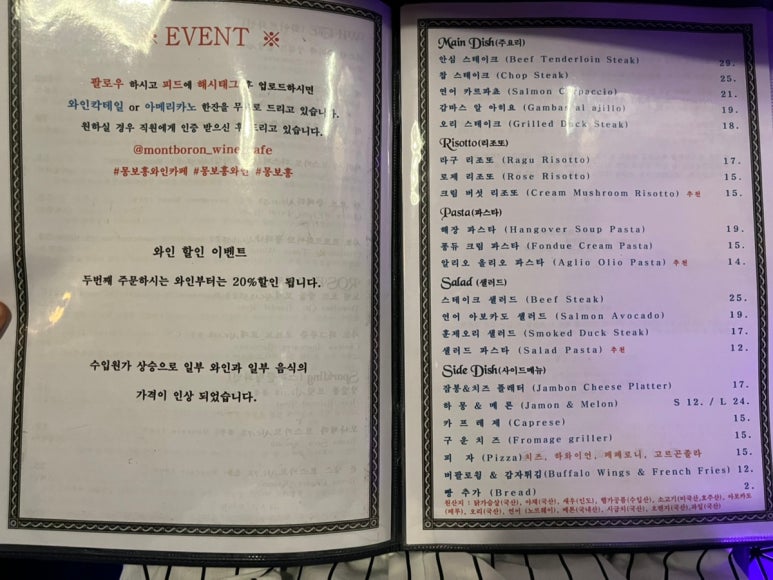 ※ EVENT ※
팔로우 하시고 피드에 해시태그 후 업로드하시면
와인칵테일 or 아메리카노 한잔을 무료로 드리고 있습니다.
원하실 경우 직원에게 인증 받으신 후 드리고 있습니다.
@montboron_winecafe
#몽보홍와인카페 #몽보홍와인 #몽보홍
와인 할인 이벤트
두번째 주문하시는 와인부터는 20%할인 됩니다.
수입원가 상승으로 일부 와인과 일부 음식의
가격이 인상 되었습니다.
Main Dish(주요리)
안심 스테이크 (Beef Tenderloin Steak) 29.
찹 스테이크 (Chop Steak) 25.
연어 카르파쵸 (Salmon Carpaccio) 21.
감바스 알 아히요 (Gambas al ajillo) 19.
오리 스테이크 (Grilled Duck Steak) 18.
Risotto(리조또)
라구 리조또 (Ragu Risotto) 17.
로제 리조또 (Rose Risotto) 15.
크림 버섯 리조또 (Cream Mushroom Risotto) 추천 15.
Pasta(파스타)
해장 파스타 (Hangover Soup Pasta) 19.
퐁듀 크림 파스타 (Fondue Cream Pasta) 15.
알리오 올리오 파스타 (Aglio Olio Pasta) 추천 14.
Salad (샐러드)
스테이크 샐러드 (Beef Steak) 25.
연어 아보카도 샐러드 (Salmon Avocado) 19.
훈제오리 샐러드 (Smoked Duck Steak) 17.
샐러드 파스타 (Salad Pasta) 추천 12.
Side Dish(사이드메뉴)
잠봉&치즈 플래터 (Jambon Cheese Platter) 17.
하 몽 & 메 론 (Jamon & Melon) S 12. / L 24.
카 프 레 제 (Caprese) 15.
구 운 치 즈 (Fromage griller) 15.
피 자 (Pizza)치즈, 하와이언, 페페로니, 고르곤졸라 15.
버팔로윙 & 감자튀김(Buffalo Wings & French Fries) 12.
빵 추가 (Bread) 2.
원산지 : 닭가슴살(국산), 야채(국산), 새우(인도), 빵가공품(수입산), 소고기(미국산,호주산), 아보카도
(페루), 오리(국산), 연어 (노르웨이), 메론(국내산), 시금치(국산), 오렌지(국산),과일(국산)